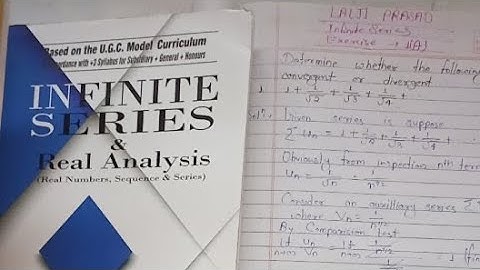 Based on the U.G.C. Model Curriculum
accordance with +3 Syllabus for Subsidiary + General + Honours
INFINITE
SERIES
&
Real Analysis
(Real Numbers, Sequence & Series)
LALJI PRASAD
Infinite Series
Exercise →
Determine whether the following
convergent or divergent
1 + 1/√2 + 1/√3 + 1/√4 +
Given series is suppose
Σ Un = 1 + 1/√2 + 1/√3 + 1/√4 + ...
Obviously from inspection nth term
Un = 1/√n = 1/n^1/2
Consider an auxilliary series Σ
where Vn = 1/n^1/2
By Comparision test
lt Un = lt
n→∞ Vn n→∞